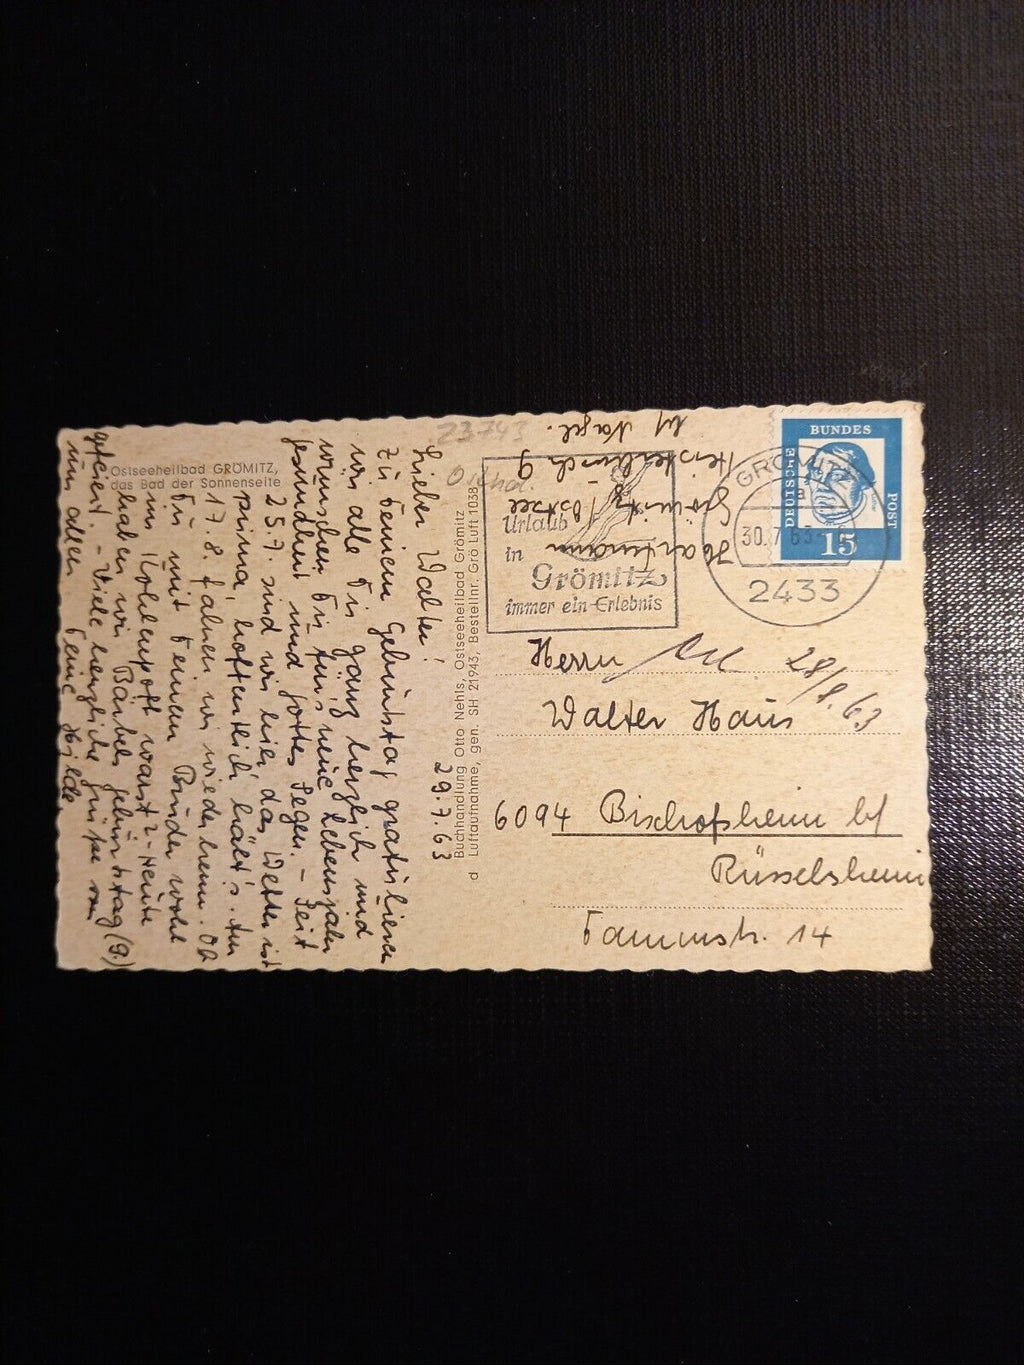 Ostseeheilbad GRÖMITZ,
das Bad der Sonnenseite
29.7.63
Lieber Walter!
Zu Deinem Geburtstag gratulieren
wir alle Dir ganz herzlich und
wünschen Dir für's neue Lebensjahr
Gesundheit und Gottes Segen. - Seit
25.7. sind wir hier, das Wetter ist
prima, hoffentlich hält's. Am
17.8. fahren wir wieder heim. Ob
Du mit Deinem Bruder wohl
im Kohlenpott warst? - Heute
haben wir Bärbels Geburtstag (9.)
gefeiert. - Viele herzliche Grüße von
uns allen Deine Hilde
Buchhandlung Otto Nehls, Ostseeheilbad Grömitz
Luftaufnahme, gen. SH 21943, Bestellnr. Grö Luft 1038
23743
Hartmann
Grömitz/Ostsee
9
b/ Nagel.
Urlaub
in
Grömitz
immer ein Erlebnis
GRÖMITZ
a
30.7.63
2433
DEUTSCHE
BUNDES
POST
15
Herrn
28/8.63
Walter Haus
6094 Bischofsheim b/
Rüsselsheim
Taunusstr. 14